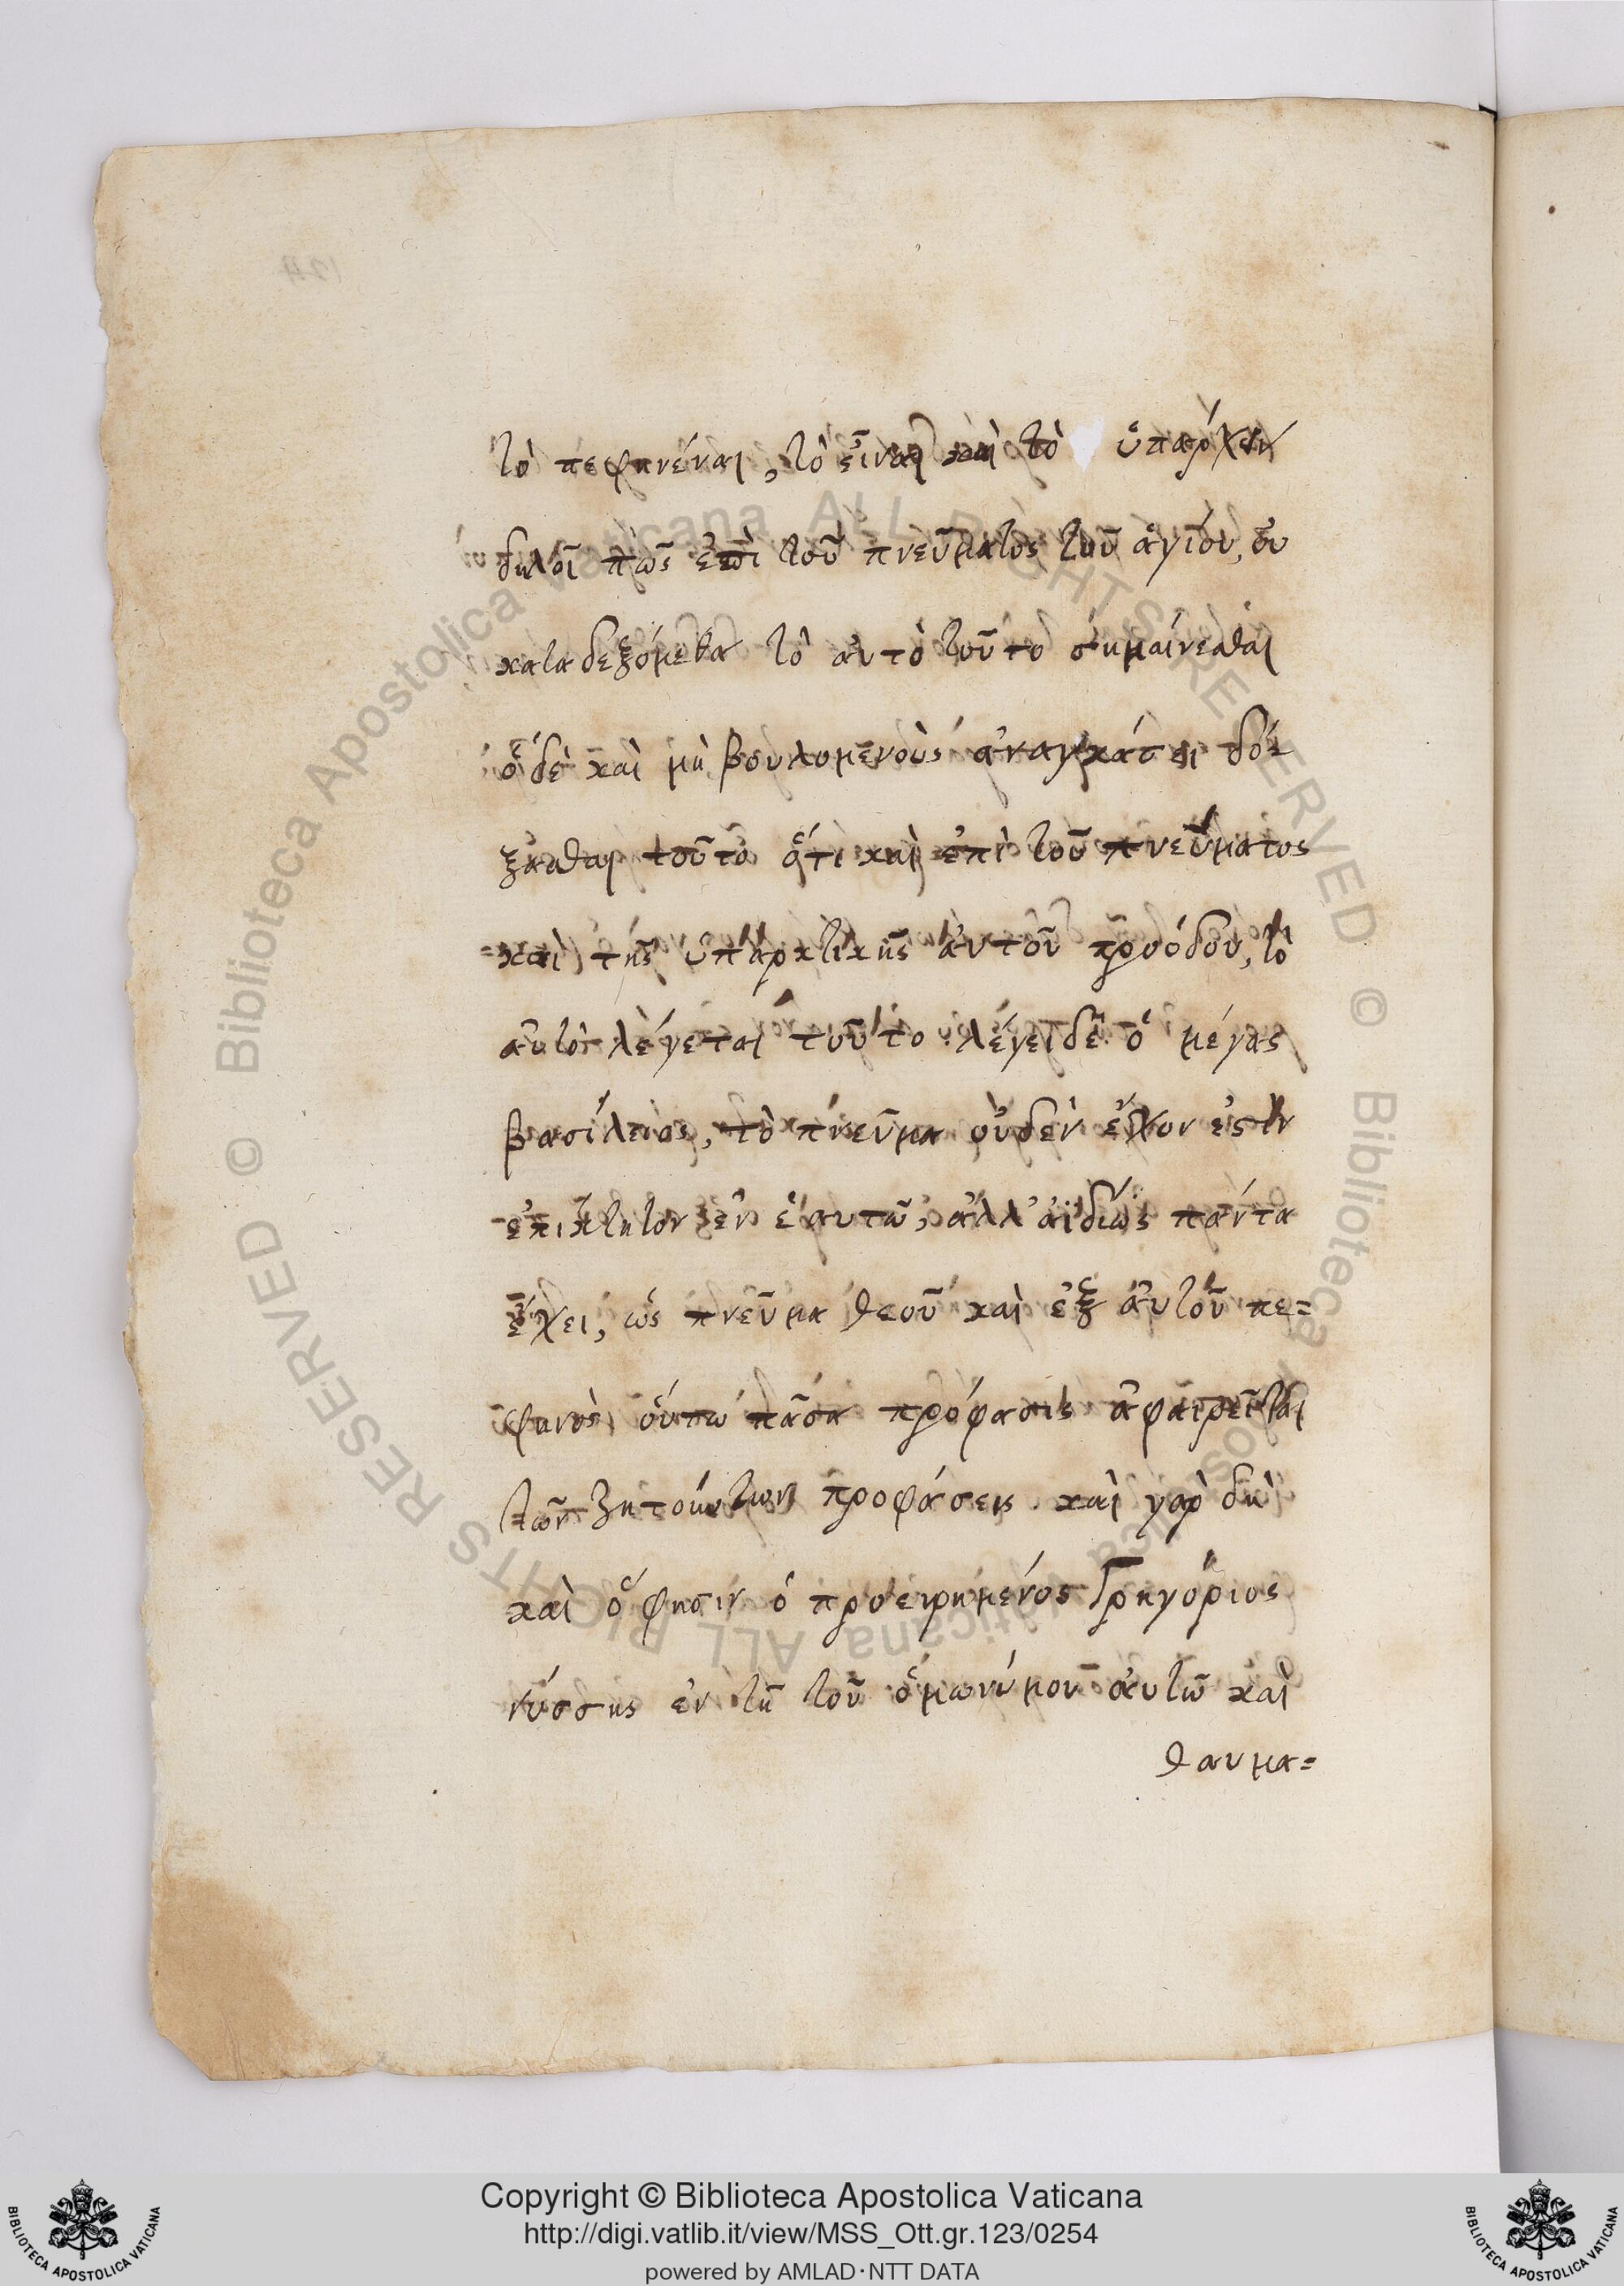 τὸ πεφηνέναι, τὸ εἶναι καὶ τὸ ὑπάρχειν
δηλοῖ πῶς ἐπὶ τοῦ πνεύματος τοῦ ἁγίου, οὐ
καταδεξόμεθα τὸ αὐτὸ τοῦτο σημαίνεσθαι
ὅδὲ καὶ μὴ βουλομένους ἀναγκάσει δέ-
ξασθαι τοῦτο ὅτι καὶ ἐπὶ τοῦ πνεύματος
καὶ τῆς ὑπαρκτικῆς αὐτοῦ προόδου, τὸ
αὐτὸ λέγεται τοῦτο. λέγει δὲ ὁ μέγας
βασίλειος, τὸ πνεῦμα οὐδὲν ἔχον ἐστὶν
ἐπίκτητον ἐν ἑαυτῶ, ἀλλ' ἀϊδίως πάντα
ἔχει, ὡς πνεῦμα θεοῦ καὶ ἐξ αὐτοῦ πε=
φηνὸς οὕτω πᾶσα πρόφασις ἀφαιρεῖται
τῶν ζητούντων προφάσεις. καὶ γὰρ δὴ
καὶ ὅ φησιν ὁ προειρημένος Γρηγόριος
νύσσης ἐν τῆ τοῦ ὁμωνύμου αὐτῶ καὶ
θαυμα=
Copyright © Biblioteca Apostolica Vaticana
http://digi.vatlib.it/view/MSS_Ott.gr.123/0254
powered by AMLAD·NTT DATA
BIBLIOTECA APOSTOLICA VATICANA
BIBLIOTECA APOSTOLICA VATICANA
© Biblioteca Apostolica Vaticana ALL RIGHTS RESERVED © Biblioteca Apostolica Vaticana ALL RIGHTS RESERVED